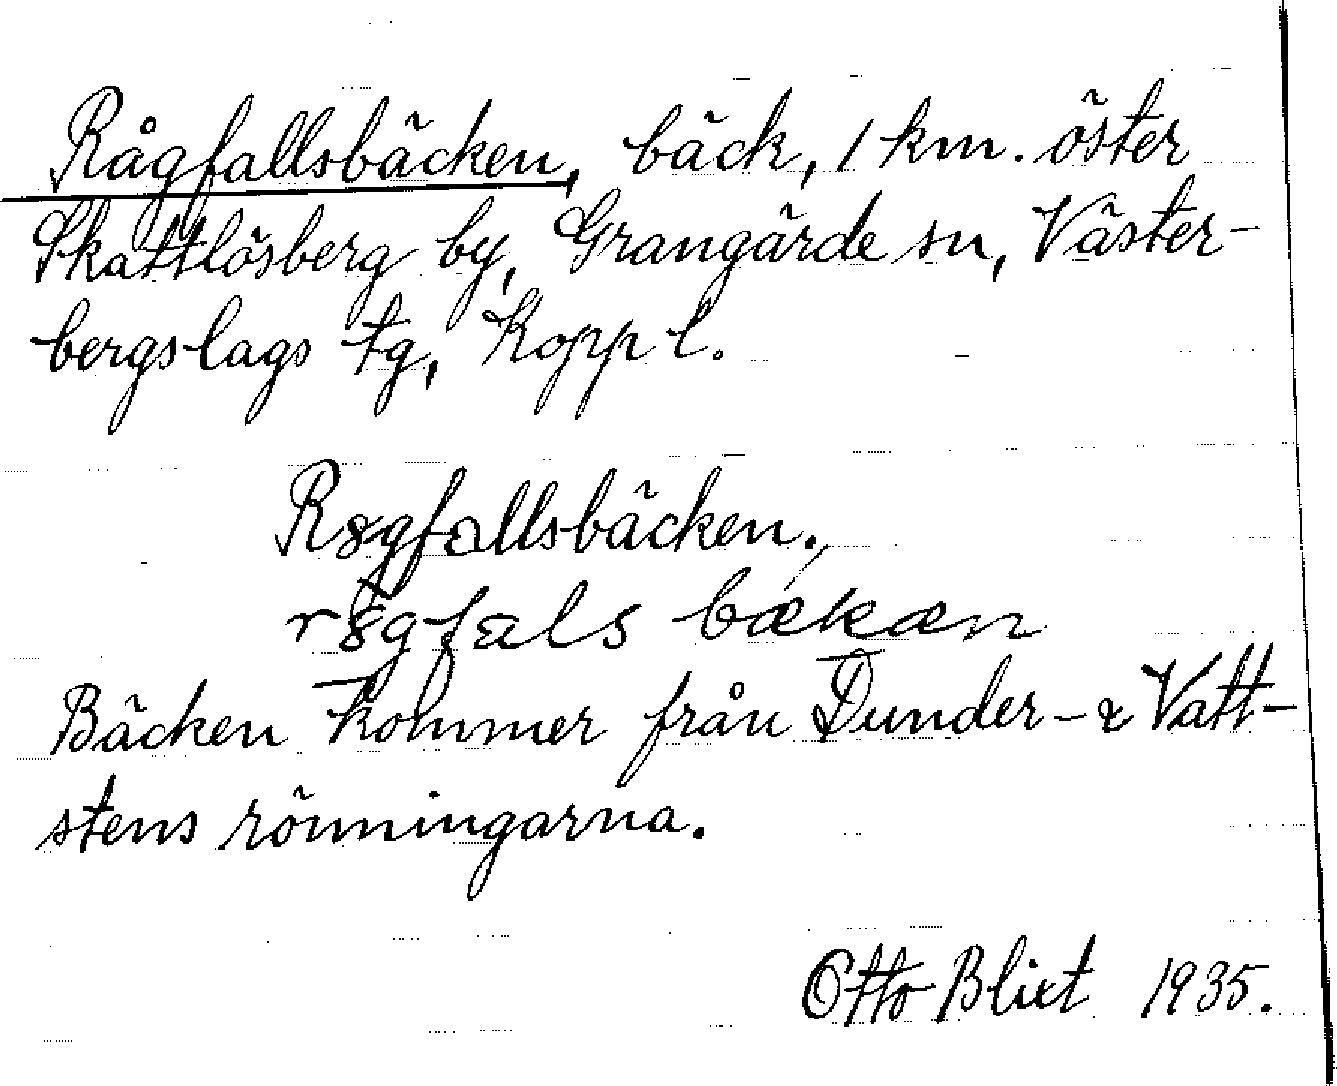 Rågfallsbäcken, bäck, 1 km. öster
Skattlösberg by, Grangärde sn, Väster-
bergslags tg, Kopp l.
Rågfallsbäcken.
bækæn
Bäcken kommer från Dunder- & Vatt-
stens rönningarna.
Otto Blixt 1935.